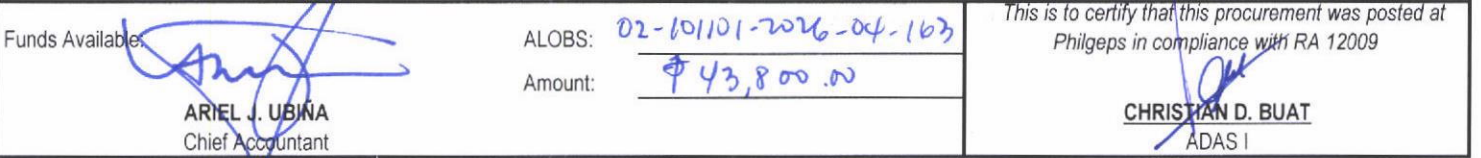 Funds Available:
ARIEL J. UBIÑA
Chief Accountant
ALOBS: 02-101101-2026-04-163
Amount: ₱43,800.00
This is to certify that this procurement was posted at
Philgeps in compliance with RA 12009
CHRISTIAN D. BUAT
ADAS I